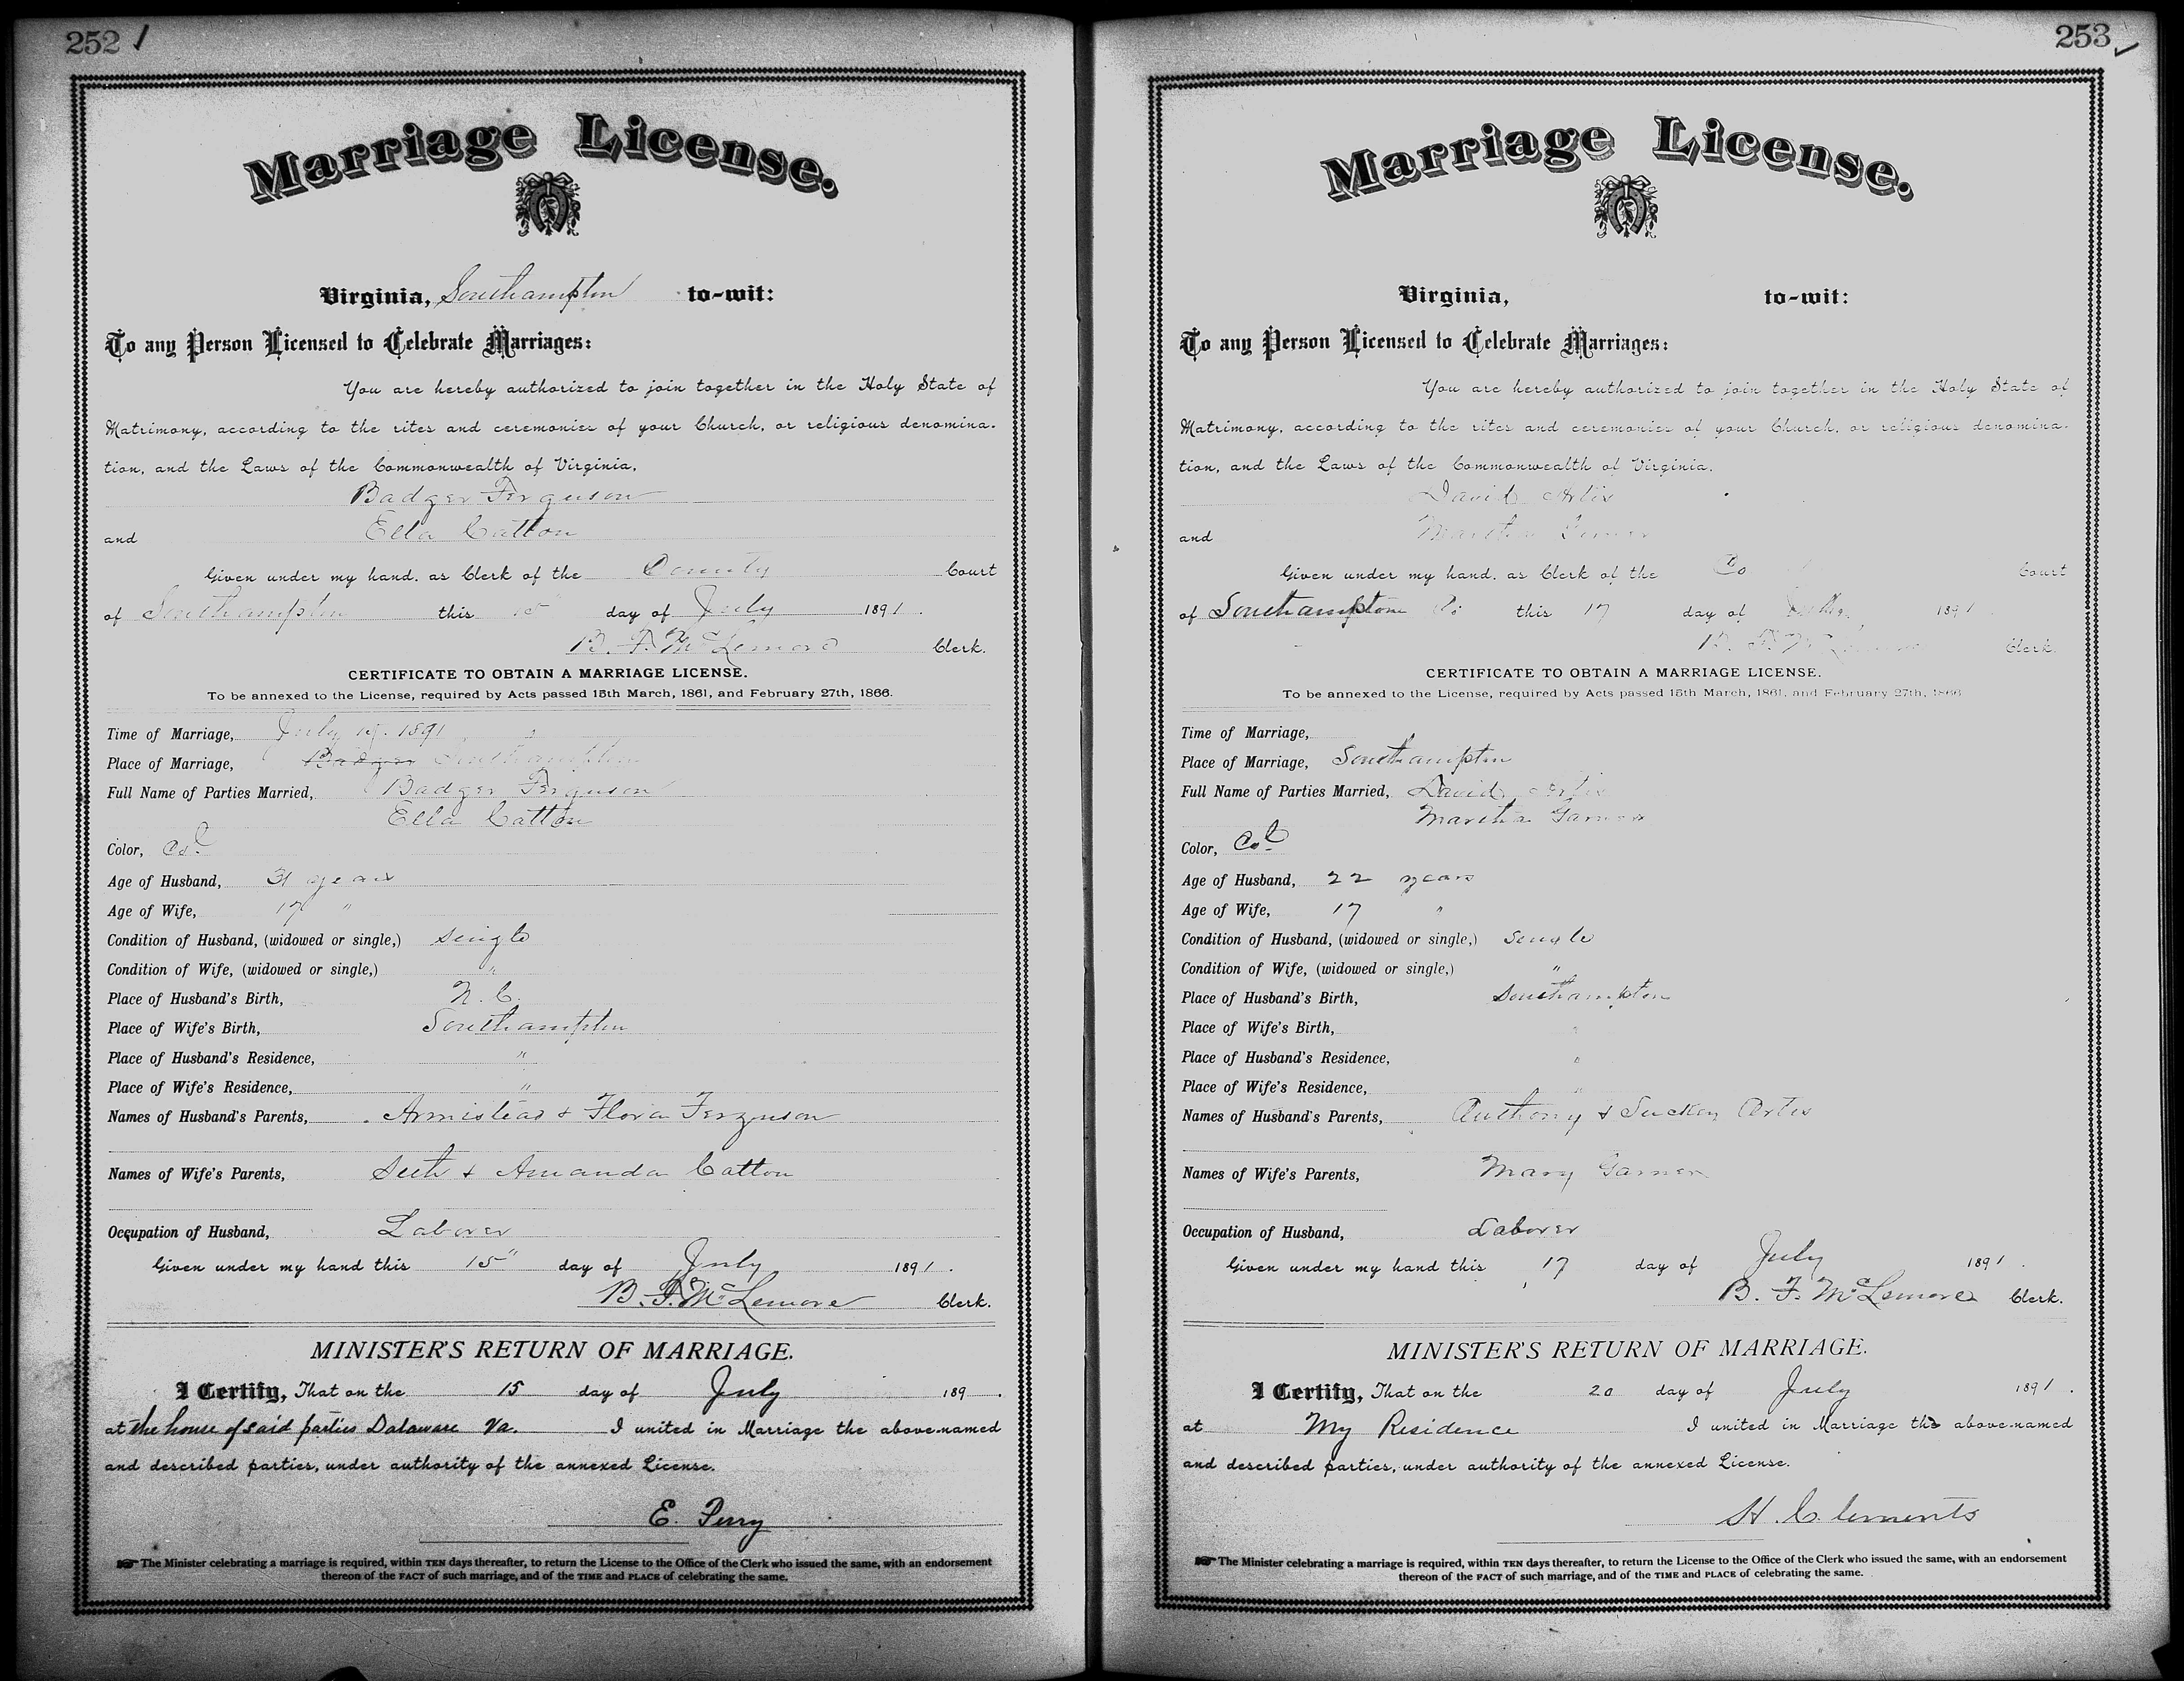 252
Marriage License.
Virginia, Southampton to-wit:
To any Person Licensed to Celebrate Marriages:
You are hereby authorized to join together in the Holy State of
Matrimony, according to the rites and ceremonies of your Church, or religious denomina-
tion, and the Laws of the Commonwealth of Virginia,
Badger Ferguson
and Ella Catton
Given under my hand, as Clerk of the County Court
of Southampton this 15" day of July 1891.
B. F. McLemore Clerk.
CERTIFICATE TO OBTAIN A MARRIAGE LICENSE.
To be annexed to the License, required by Acts passed 15th March, 1861, and February 27th, 1866.
Time of Marriage, July 1891
Place of Marriage, Badger Southampton
Full Name of Parties Married, Badger Ferguson
Ella Catton
Color, Col
Age of Husband, 31 years
Age of Wife, 17 "
Condition of Husband, (widowed or single,) single
Condition of Wife, (widowed or single,) "
Place of Husband's Birth, N. C.
Place of Wife's Birth, Southampton
Place of Husband's Residence, "
Place of Wife's Residence, "
Names of Husband's Parents, Armistead & Flora Ferguson
Names of Wife's Parents, Seth & Amanda Catton
Occupation of Husband, Laborer
Given under my hand this 15" day of July 1891.
B. F. McLemore Clerk.
MINISTER'S RETURN OF MARRIAGE.
I Certify, That on the 15 day of July 189 .
at the house of said parties Dalaware Va. I united in Marriage the above-named
and described parties, under authority of the annexed License.
E. Perry
The Minister celebrating a marriage is required, within TEN days thereafter, to return the License to the Office of the Clerk who issued the same, with an endorsement
thereon of the FACT of such marriage, and of the TIME and PLACE of celebrating the same.
253
Marriage License.
Virginia, to-wit:
To any Person Licensed to Celebrate Marriages:
You are hereby authorized to join together in the Holy State of
Matrimony, according to the rites and ceremonies of your Church, or religious denomina-
tion, and the Laws of the Commonwealth of Virginia,
David Artis
and Martha Garner
Given under my hand, as Clerk of the Co Court
of Southampton Co this 17 day of July 1891
B. F. McLemore Clerk.
CERTIFICATE TO OBTAIN A MARRIAGE LICENSE.
To be annexed to the License, required by Acts passed 15th March, 1861, and February 27th, 1866
Time of Marriage,
Place of Marriage, Southampton
Full Name of Parties Married, David Artis
Martha Garner
Color, Col
Age of Husband, 22 years
Age of Wife, 17 "
Condition of Husband, (widowed or single,) single
Condition of Wife, (widowed or single,) "
Place of Husband's Birth, Southampton
Place of Wife's Birth, "
Place of Husband's Residence, "
Place of Wife's Residence, "
Names of Husband's Parents, Anthony & Suckey Artis
Names of Wife's Parents, Mary Garner
Occupation of Husband, Laborer
Given under my hand this 17 day of July 1891.
B. F. McLemore Clerk.
MINISTER'S RETURN OF MARRIAGE.
I Certify, That on the 20 day of July 1891.
at My Residence I united in Marriage the above-named
and described parties, under authority of the annexed License.
H. Clements
The Minister celebrating a marriage is required, within TEN days thereafter, to return the License to the Office of the Clerk who issued the same, with an endorsement
thereon of the FACT of such marriage, and of the TIME and PLACE of celebrating the same.